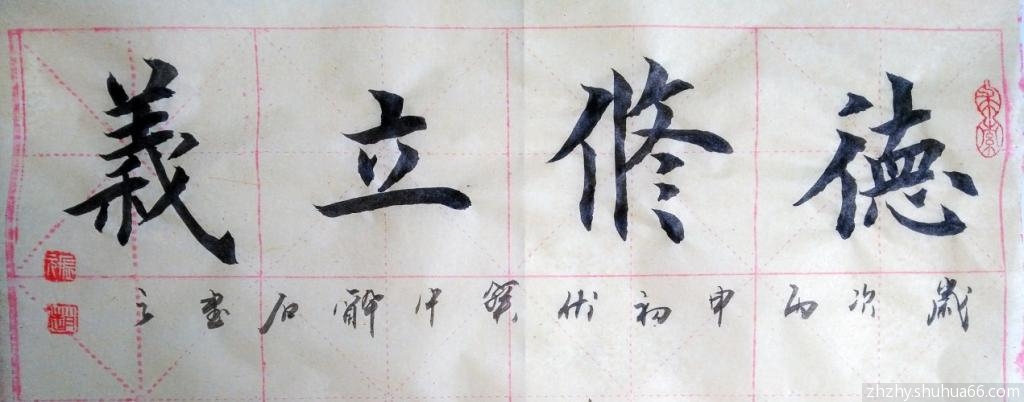 德修立義
歲次丙申初伏
石書之
zhzhy.shuhua66.com